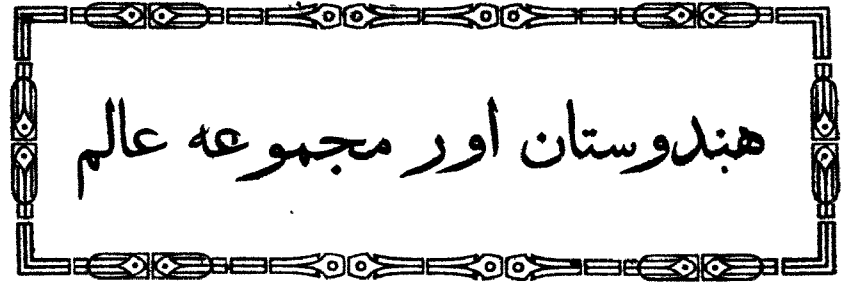 هندوستان اور مجموعه عالم